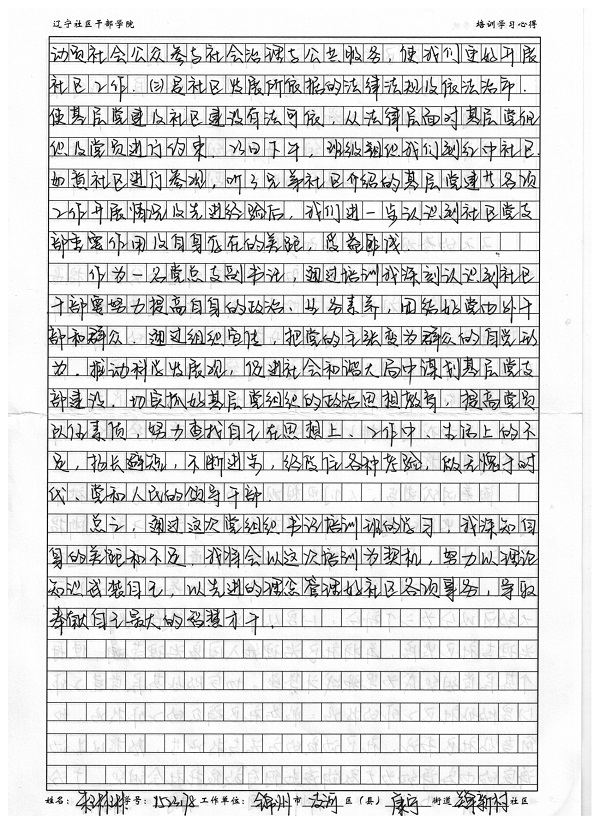 辽宁社区干部学院 培训学习心得
动员社会公众参与社会治理与公共服务，使我们更好开展
社区工作。㈡是社区发展所依据的法律法规及依法治
使基层党建及社区建设有法可依，从法律层面对基层党组
织及党员进行约束。23日下午，班级组织我们到红中社区
如黄社区进行参观，听了兄弟社区介绍的基层党建廿各项
工作开展情况及先进经验后，我们进一步认识到社区党支
部书记作用及自身存在的差距，受益匪浅。
作为一名党总支副书记，通过培训我深刻认识到社区
干部要努力提高自身的政治、业务素养，团结好党内外干
部和群众。通过组织宣传，把党的主张变为群众的自觉行
为。推动科学发展观，促进社会和谐大局中谋划基层党支
部建设。切实抓好基层党组织的政治思想教育，提高党员
队伍素质，努力查找自己在思想上、工作中、生活上的不
足，扬长避短，不断进步，经受住各种考验，做无愧于时
代、党和人民的领导干部
总之，通过这次党组织书记培训班的学习，我深知自
身的差距和不足。我将会以这次培训为契机，努力以理论
知识武装自己，以先进的理念管理好社区各项事务，争取
奉献自己最大的智慧才干。
姓名： 学号：152278 工作单位：锦州市 古河 区（县） 康宁 街道 锦新村 社区